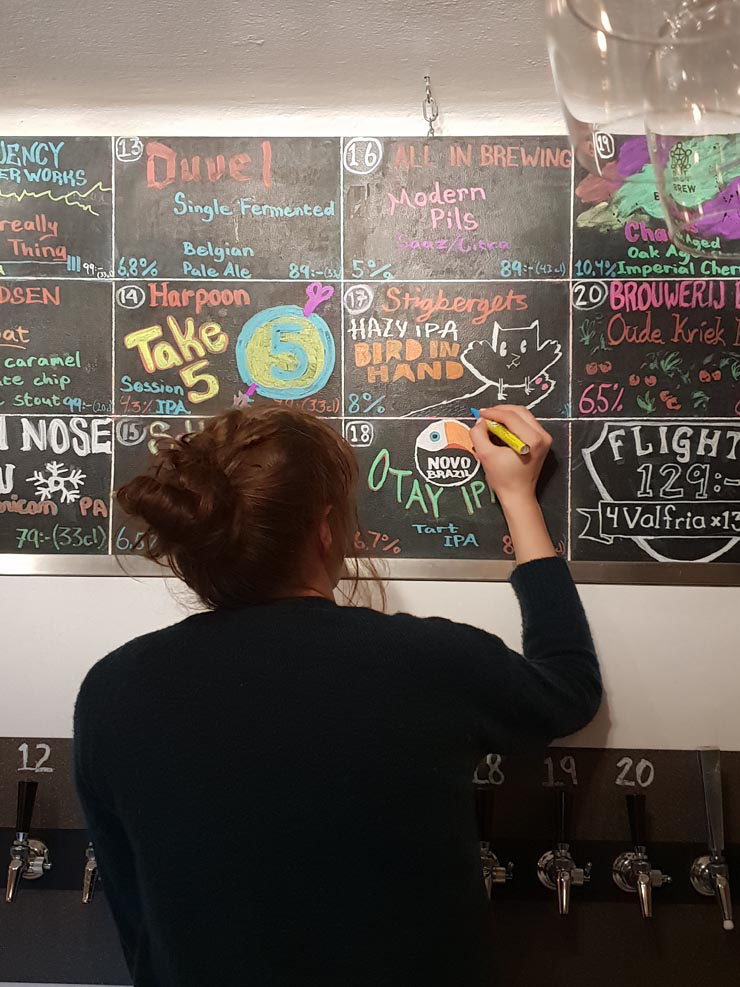 WORKS
really
Thing
99:-
13
Duvel
Single Fermented
Belgian
Pale Ale
6,8%
89:-(33
16
ALL IN BREWING
Modern
Pils
Saaz/Citra
5%
89:-(43cl)
19
BREW
Aged
Oak
10,4%
Imperial
caramel
chip
stout
14
Harpoon
Take
5
5
Session
IPA
4.3%
(33cl)
17
Stigbergets
HAZY IPA
BIRD IN
HAND
8%
20
BROUWERIJ
Oude Kriek
6,5%
NOSE
PA
79:-(33cl)
15
18
NOVO
BRAZIL
OTAY
Tart
IPA
6.7%
FLIGHT
129:-
4 Valfria x 13
12
18
19
20